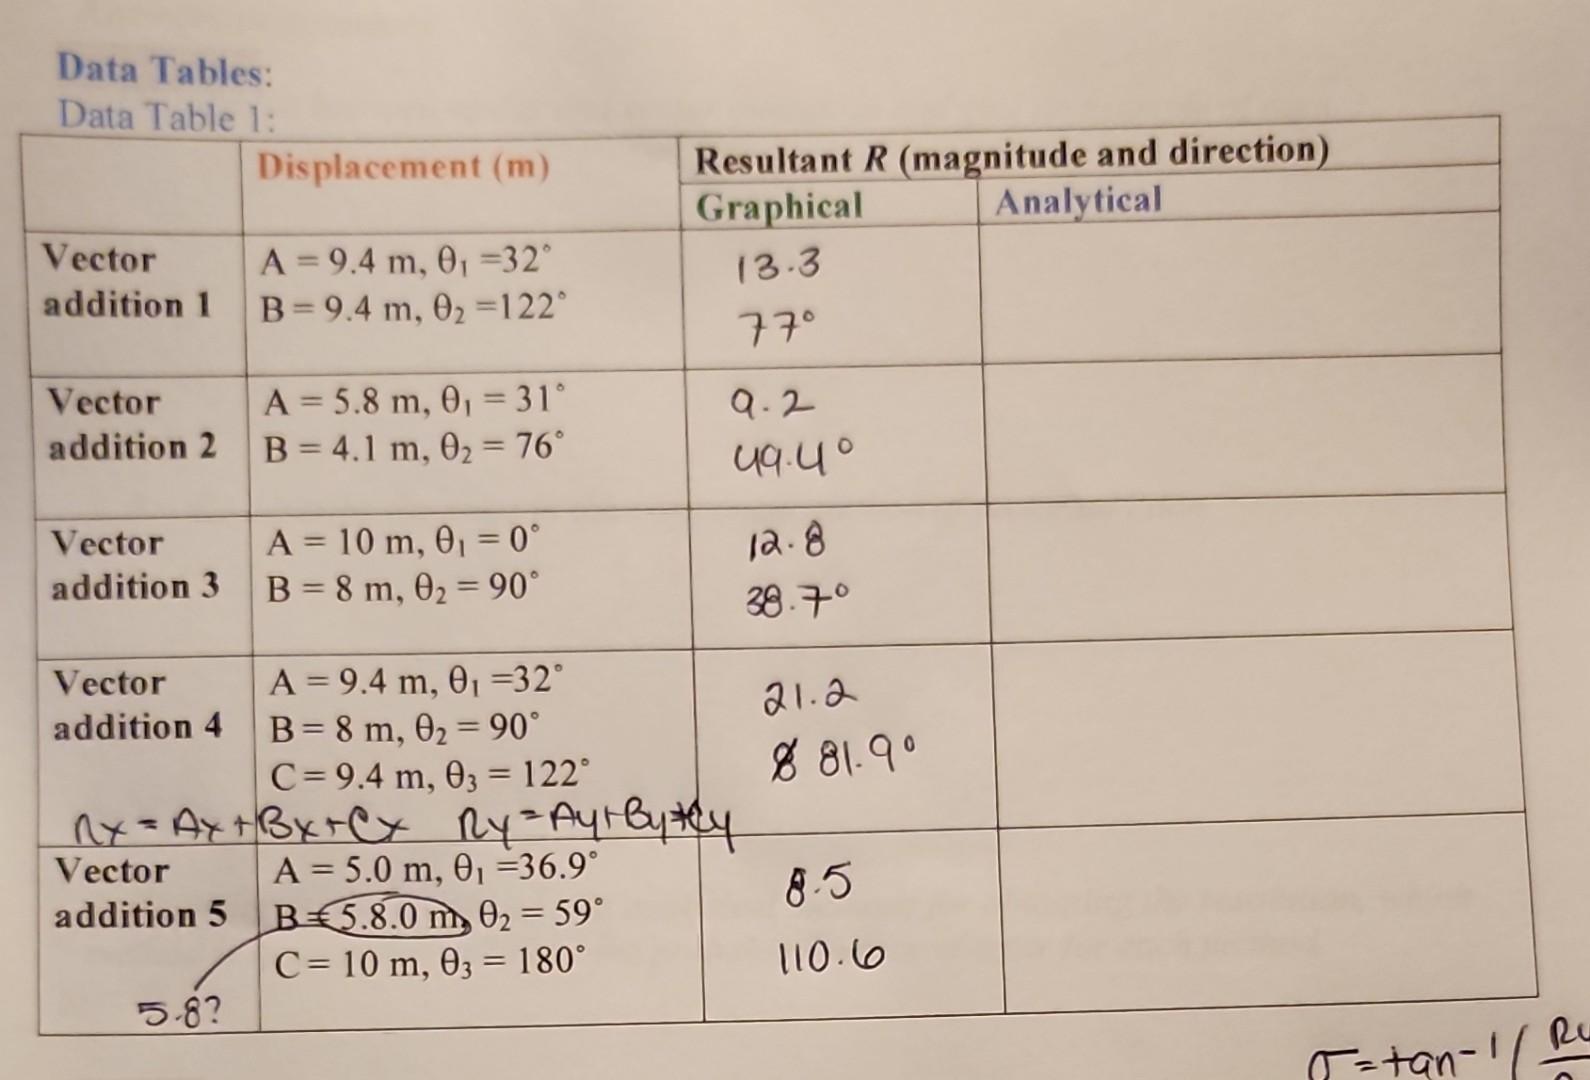 Data Tables:
Data Table 1:
Displacement (m)
Resultant R (magnitude and direction)
Graphical
Analytical
Vector addition 1
A = 9.4 m, θ₁ =32°
B = 9.4 m, θ₂ =122°
13.3
77°
Vector addition 2
A = 5.8 m, θ₁ = 31°
B = 4.1 m, θ₂ = 76°
9.2
49.4°
Vector addition 3
A = 10 m, θ₁ = 0°
B = 8 m, θ₂ = 90°
12.8
38.7°
Vector addition 4
A = 9.4 m, θ₁ =32°
B = 8 m, θ₂ = 90°
C = 9.4 m, θ₃ = 122°
21.2
81.9°
Rx = Ax + Bx + Cx Ry = Ay + By + Cy
Vector addition 5
A = 5.0 m, θ₁ =36.9°
B = 5.8.0 m, θ₂ = 59°
C = 10 m, θ₃ = 180°
8.5
110.6
5.8?
σ = tan-1 ( Ry